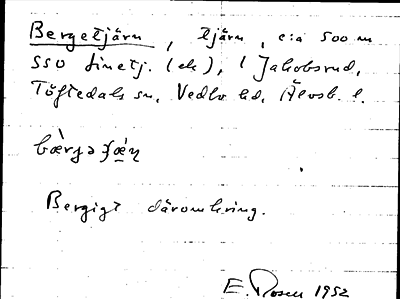 Bergetjärn, tjärn, c:a 500 m
SSO Finetj. (ek), l Jakobsrud,
Töftedals sn, Vedbo hd, Älvsb. l.
Bergigt däromkring.
E. Rosen 1952